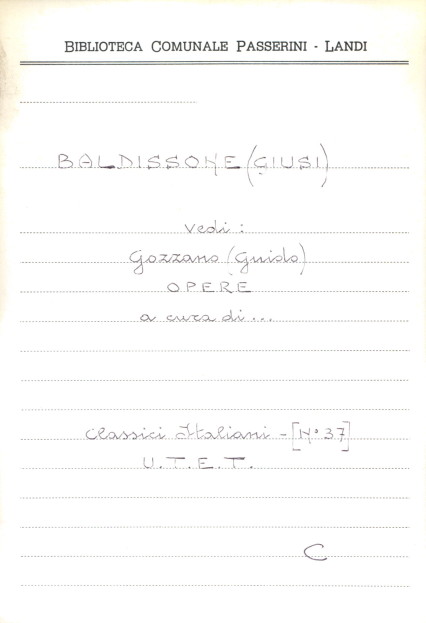 BIBLIOTECA COMUNALE PASSERINI - LANDI
BALDISSONE (GIUSI)
vedi :
Gozzano (Guido)
OPERE
a cura di ...
Classici Italiani - [N° 37]
U.T.E.T.
C